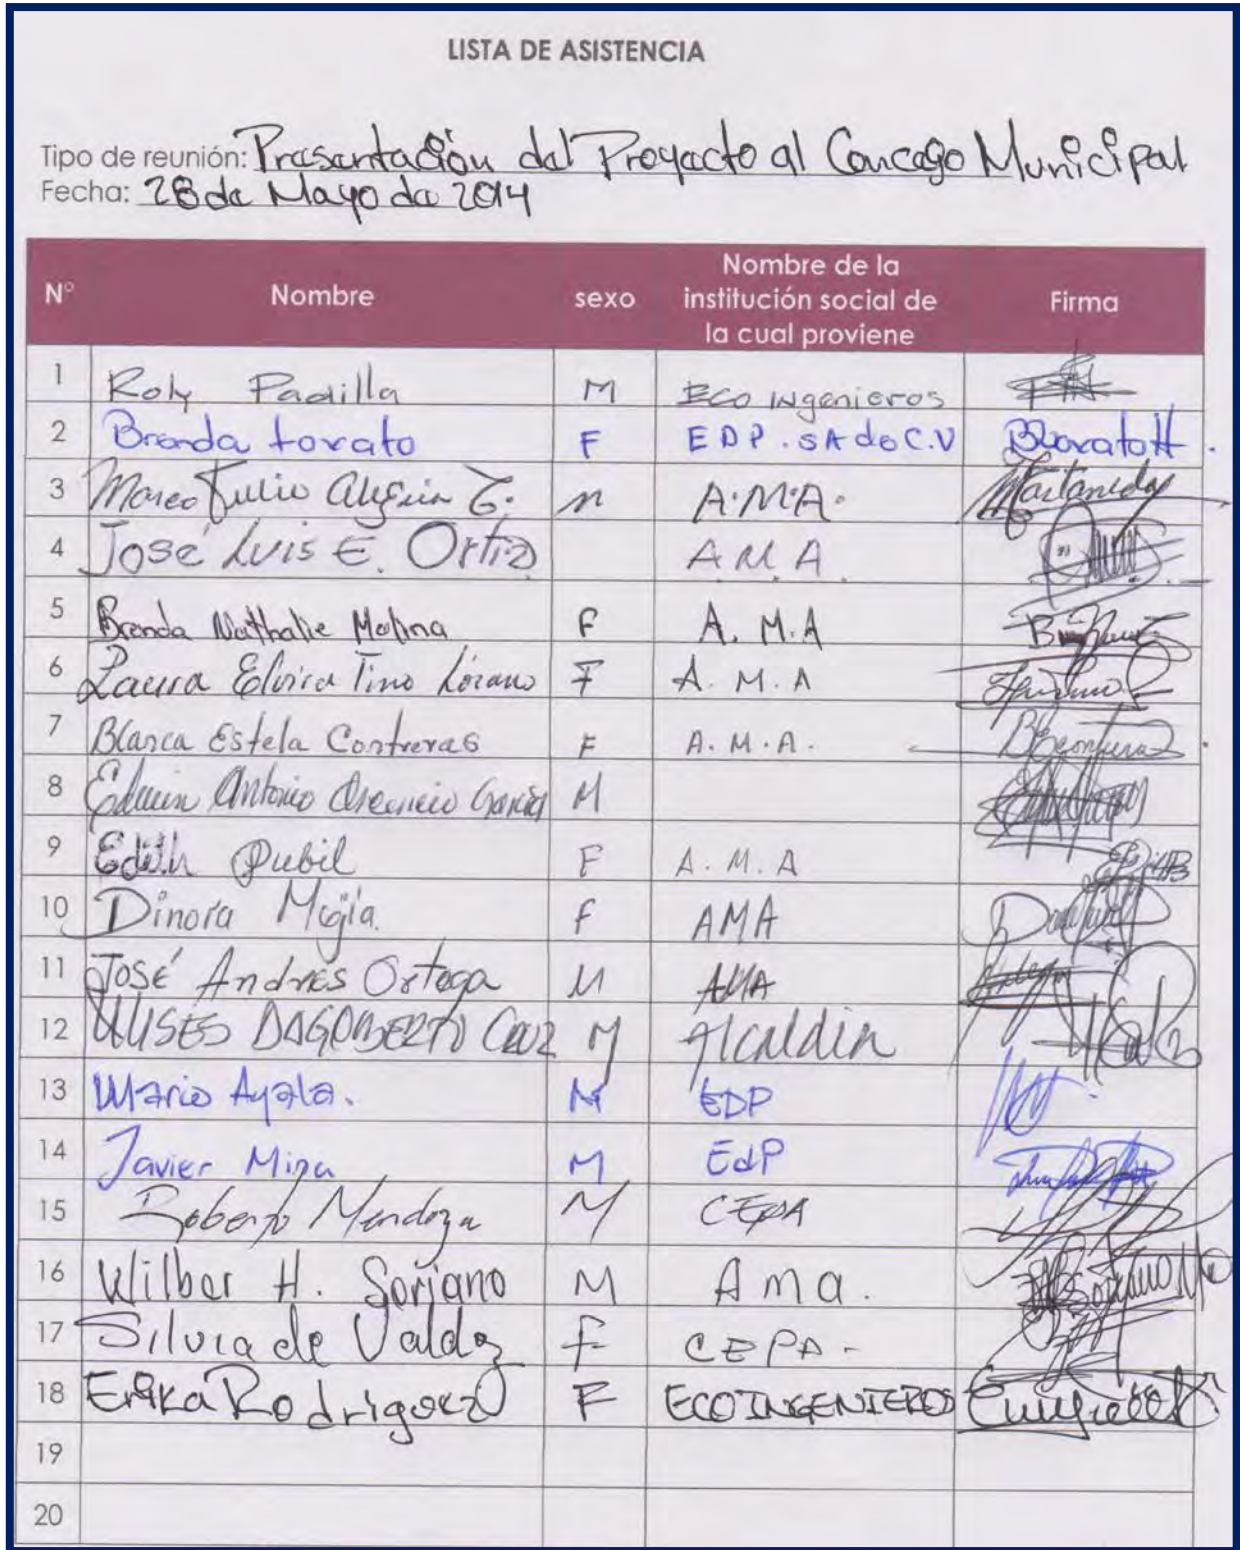 LISTA DE ASISTENCIA
Tipo de reunión: Presentación del Proyecto al Concejo Municipal
Fecha: 28 de Mayo de 2014
N° Nombre sexo Nombre de la institución social de la cual proviene Firma
1 Roly Padilla M ECO ingenieros
2 Brenda Lovato F EDP. SA de C.V BLovatoH.
3 Marco Tulio M A.M.A.
4 José Luis E. Ortiz A.M.A.
5 Brenda Nathalie Molina F A. M.A
6 Laura Elvira Tino Lozano F A. M. A
7 Blanca Estela Contreras F A. M. A.
8 Edwin Antonio García M
9 Edith Pubil F A. M. A
10 Dinora Mejía. f AMA
11 José Andrés Ortega M AMA
12 ULISES DAGOBERTO CRUZ M Alcaldia
13 Mario Ayala. M EDP
14 Javier Mira M EdP
15 Roberto Mendoza M CEPA
16 Wilber H. Soriano M Ama.
17 Silvia de Valdez f CEPA-
18 Erika Rodriguez F ECOINGENIEROS
19
20